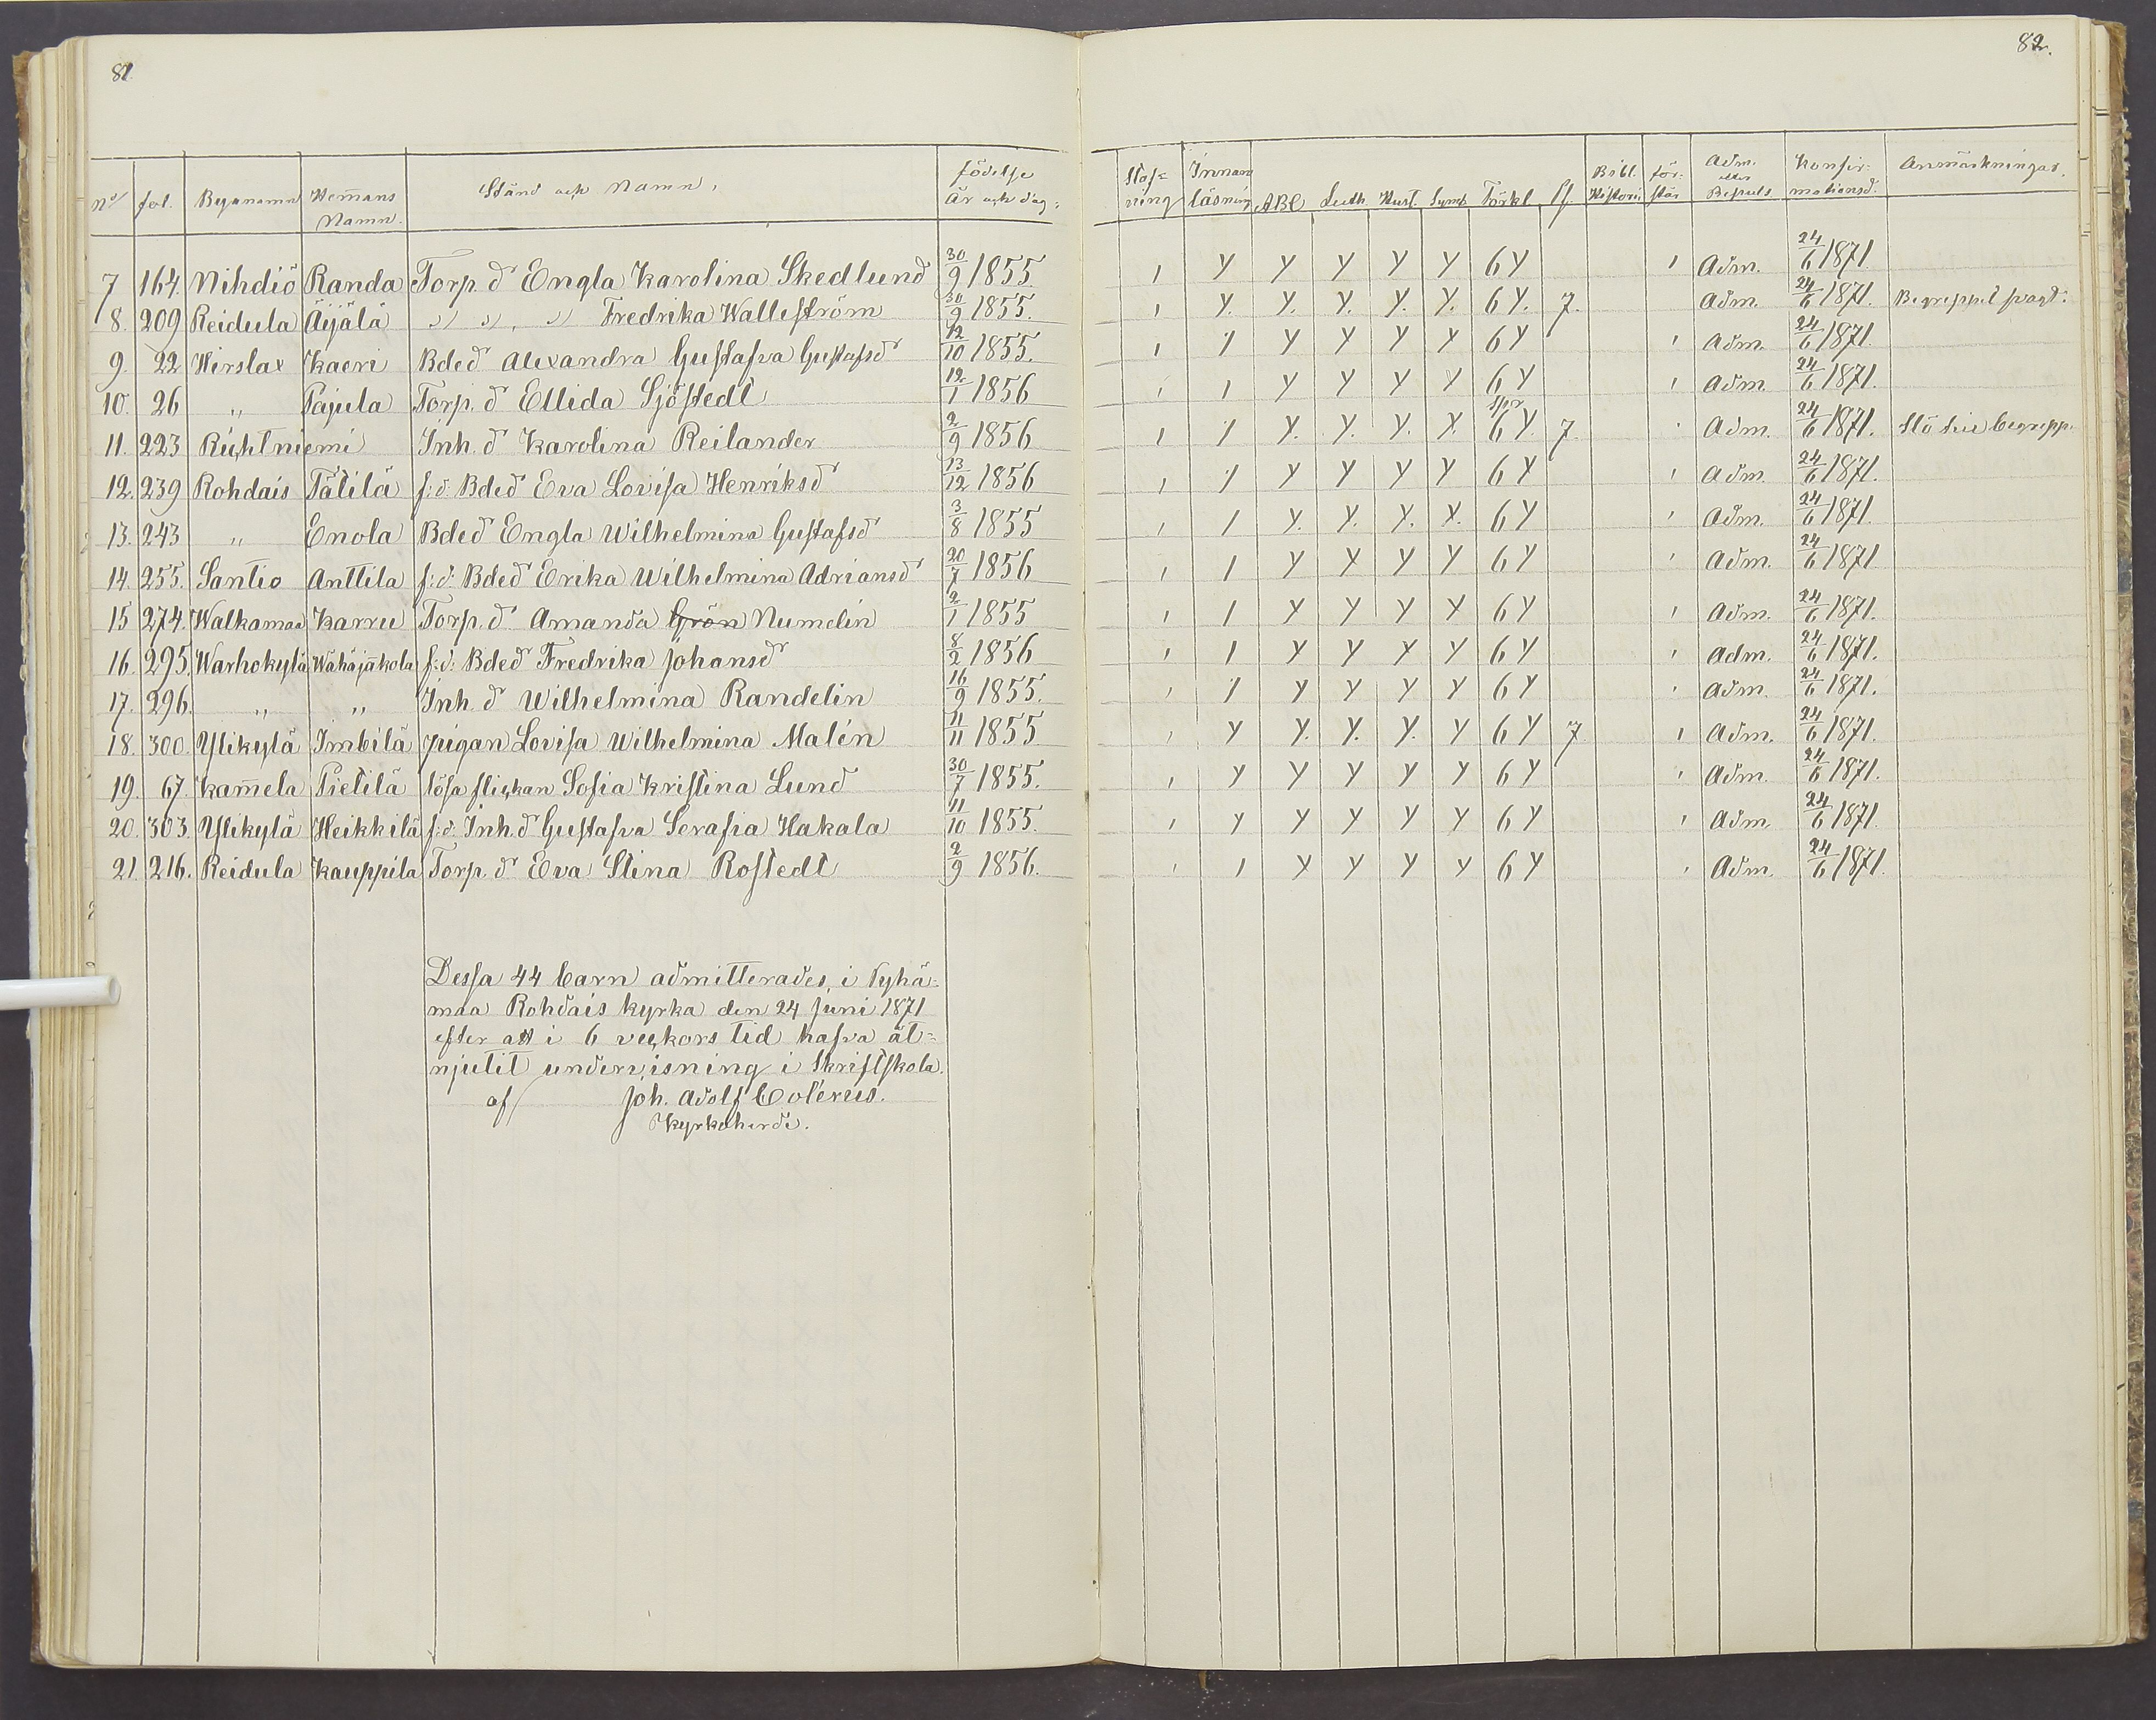 81.
82.
No fol. Byanamn Hemans Namn. Stånd och Namn. födelse år och dag. Staf=ning Innan läsning ABC Luth. Hust. Symb Förkl. Bibl. Historia för: står Adm. eller Repuls Konfir: mationsd. Anmärkningar.
7 164. Nihdiö Randa Torp. d Engla Karolina Skedlund 30/9 1855. 1 Y Y Y Y Y 6 Y 1 Adm. 24/6 1871.
8. 209 Reidula Äijälä " " " Fredrika Walleström 30/9 1855. 1 Y. Y. Y. Y. Y. 6 Y. 7. Adm. 24/6 1871. Begreppet svagt.
9. 22 Hirslax Kaeri Bded Alexandra Gustafva Gustafsd 12/10 1855. 1 1 Y Y Y Y 6 Y 1 Adm. 24/6 1871.
10. 26 " Pajula Torp. d Ellida Sjöstedt 12/1 1856 1 1 Y Y Y Y 6 Y 1 Adm. 24/6 1871.
11. 223 Riihtniemi Inh. d Karolina Reilander 2/9 1856 1 1 Y. Y. Y. Y. 6 Y. 7. Adm. 24/6 1871. Slö begrepp.
12. 239 Rohdais Tätilä f: d: Bded Eva Lovisa Henriksd 13/12 1856 1 1 Y Y Y Y 6 Y 1 Adm. 24/6 1871.
13. 243 " Enola Bded Engla Wilhelmina Gustafsd 3/8 1855 1 1 Y. Y. Y. Y. 6 Y 1 Adm. 24/6 1871.
14. 255. Santio Anttila f: d: Bded Erika Wilhelmina Adriansd 20/7 1856 1 1 Y Y Y Y 6 Y 1 Adm. 24/6 1871.
15 274. Walkamaa Karru Torp. d Amanda Grön Numelin 2/1 1855 1 1 Y Y Y Y 6 Y 1 Adm. 24/6 1871.
16. 295. Warhokylä Wähäjakola f: d: Bded Fredrika Johansd 8/2 1856 1 1 Y Y Y Y 6 Y 1 Adm. 24/6 1871.
17. 296. " " Inh. d Wilhelmina Randelin 16/9 1855. 1 1 Y Y Y Y 6 Y 1 Adm. 24/6 1871.
18. 300. Ylikylä Imbilä pigan Lovisa Wilhelmina Malén 11/11 1855 1 Y Y. Y. Y. Y 6 Y 7. 1 Adm. 24/6 1871.
19. 67. Kamela Pietilä lösa flickan Sofia Kristina Lund 30/7 1855. 1 Y Y Y Y Y 6 Y 1 Adm. 24/6 1871.
20. 303. Ylikylä Heikkilä f: d: Inh. d Gustafva Serafia Hakala 11/10 1855. 1 Y Y Y Y Y 6 Y 1 Adm. 24/6 1871.
21 216. Reidula Kauppila Torp. d Eva Stina Rostedt 2/9 1856. 1 1 Y Y Y Y 6 Y 1 Adm. 24/6 1871.
Dessa 44 barn admitterades i Pyhä=
maa Rohdais kyrka den 24 Juni 1871
efter att i 6 veckors tid hafva åt=
njutit undervisning i Skriftskola
af Joh. Adolf Colérus.
Kyrkoherde.